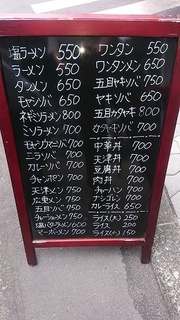 塩ラーメン 550
ラーメン 550
タンメン 650
モヤシソバ 650
ネギソラーメン 800
ミソラーメン 700
モヤシウマニソバ 700
ニラソバ 700
カレーソバ 700
チャンポメン 700
天津メン 750
広東メン 750
五目ソバ 750
チャーシューメン 750
塩バターラーメン 600
マーボーメン 700
ワンタン 550
ワンタンメン 650
五目ヤキソバ 750
ヤキソバ 650
五目カタヤキ 800
カタヤキソバ 700
中華丼 700
天津丼 700
豆腐丼 700
肉丼 700
チャーハン 700
ナシゴレン 700
カレーライス 650
ライス(大) 250
ライス 200
ライス(小) 150